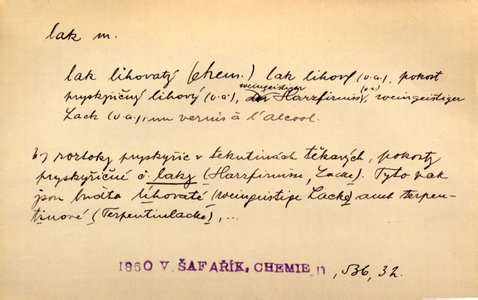 lak m.
lak lihovatý (chem.) lak lihový (v.a.), pokost
weingeistiger
pryskyřičný lihový (v.a.), Harzfirniss (v.a.), weingeistiger
Lack (v.a.), un vernis à l'alcool.
b) roztoky pryskyřic v tekutinách těkavých, pokosty
pryskyřičné č. laky (Harzfirnisse, Lacke). Tyto pak
jsou buďto lihovaté (weingeistige Lacke) aneb terpen-
tinové (Terpentinlacke), ...
1860 V. ŠAFAŘÍK, CHEMIE II, 536, 32.